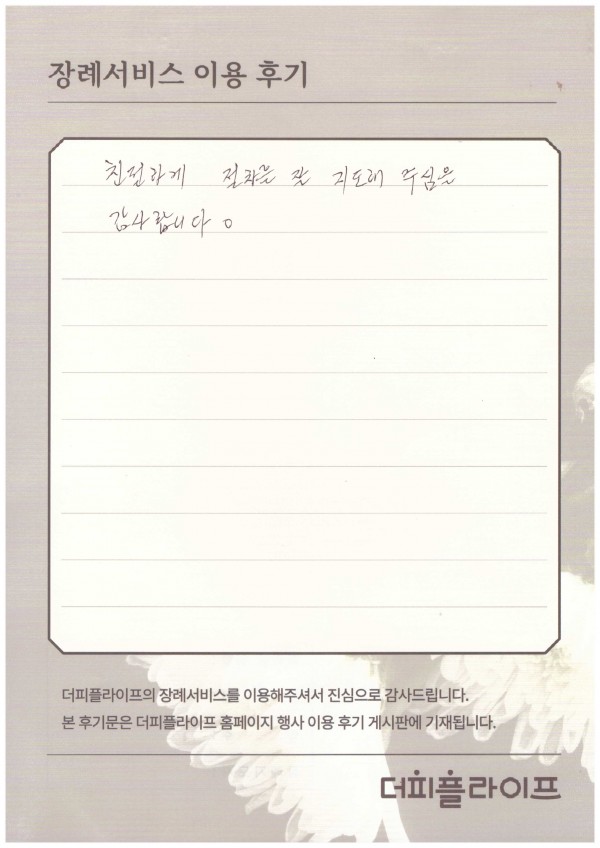 장례서비스 이용 후기
친절하게 절차를 잘 지도해 주심을
감사합니다.
더피플라이프의 장례서비스를 이용해주셔서 진심으로 감사드립니다.
본 후기문은 더피플라이프 홈페이지 행사 이용 후기 게시판에 기재됩니다.
더피플라이프